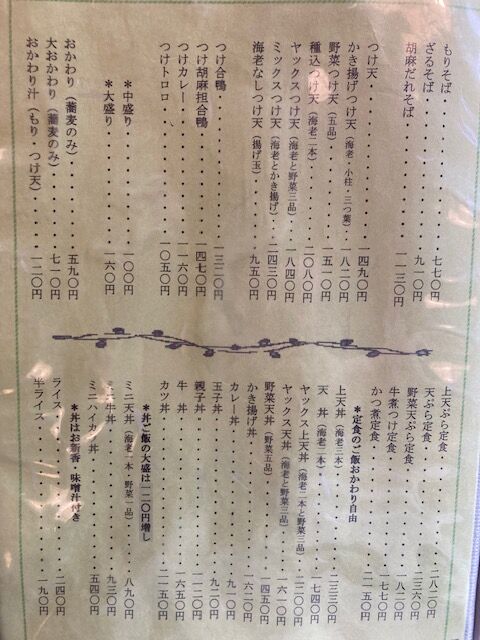 もりそば・・・・・・・・七七〇円
ざるそば・・・・・・・・九一〇円
胡麻だれそば・・・・・・一一三〇円
つけ天・・・・・・・・・一四九〇円
かき揚げつけ天(海老・小柱・三つ葉)・一八二〇円
野菜つけ天(五品)・・・・一五一〇円
種込つけ天(海老二本)・・・二〇八〇円
ヤックスつけ天(海老と野菜三品)・・一八四〇円
ミックスつけ天(海老とかき揚げ)・・二四三〇円
海老なしつけ天(揚げ玉)・・・九五〇円
つけ合鴨・・・・・・・・一三二〇円
つけ胡麻担合鴨・・・・・一四七〇円
つけカレー・・・・・・・一一六〇円
つけトロロ・・・・・・・一〇五〇円
*中盛り・・・・・・・・一〇〇円
*大盛り・・・・・・・・一六〇円
おかわり(蕎麦のみ)・・・・五九〇円
大おかわり(蕎麦のみ)・・・七一〇円
おかわり汁(もり・つけ天)・・・一二〇円
上天ぷら定食・・・・・・二八二〇円
天ぷら定食・・・・・・・二三六〇円
野菜天ぷら定食・・・・・一八二〇円
牛煮つけ定食・・・・・・一七七〇円
かつ煮定食・・・・・・・二一五〇円
*定食のご飯おかわり自由
上天丼(海老三本)・・・・二三三〇円
天 丼(海老二本)・・・・一七四〇円
ヤックス上天丼(海老二本と野菜三品)・二二〇〇円
ヤックス天丼(海老と野菜三品)・・一六一〇円
野菜天丼(野菜五品)・・・一四五〇円
かき揚げ丼・・・・・・・一六二〇円
カレー丼・・・・・・・・九一〇円
玉子丼・・・・・・・・・九二〇円
親子丼・・・・・・・・・一一二〇円
牛 丼・・・・・・・・・一六五〇円
カツ丼・・・・・・・・・二一五〇円
*丼ご飯の大盛は一二〇円増し
ミニ天丼(海老一本・野菜一品)・・八九〇円
ミニ牛丼・・・・・・・・九三〇円
ミニハイカラ丼・・・・・五四〇円
*丼はお新香・味噌汁付き
ライス・・・・・・・・・二四〇円
半ライス・・・・・・・・一九〇円